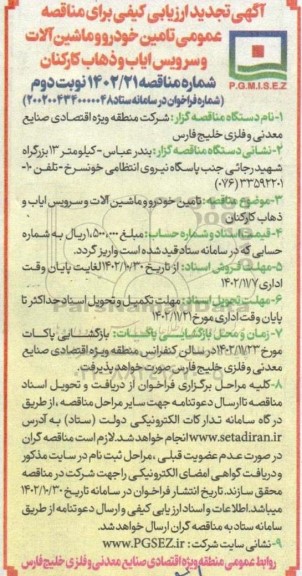 آگهی تجدید ارزیابی کیفی برای مناقصه
عمومی تامین خودرو و ماشین آلات
و سرویس ایاب و ذهاب کارکنان
شماره مناقصه ۱۴۰۲/۲۱ نوبت دوم
P.G.M.I.S.E.Z
(شماره فراخوان در سامانه ستاد ۲۰۰۲۰۰۴۳۴۰۰۰۰۰۴۸)
۱-نام دستگاه مناقصه گزار: شرکت منطقه ویژه اقتصادی صنایع
معدنی و فلزی خلیج فارس
۲-نشانی دستگاه مناقصه گزار: بندر عباس-کیلومتر ۱۳ بزرگراه
شهید رجائی جنب پاسگاه نیروی انتظامی خونسرخ -تلفن ۱۰-
۳۳۵۹۲۲۰۱ (۰۷۶)
۳-موضوع مناقصه: تامین خودرو و ماشین آلات و سرویس ایاب و
ذهاب کارکنان
۴-قیمت اسناد و شماره حساب: مبلغ ۱،۵۰۰،۰۰۰ ریال به شماره
حسابی که در سامانه ستاد قید شده است واریز گردد.
۵-مهلت فروش اسناد: از تاریخ ۱۴۰۲/۱۰/۳۰ لغایت پایان وقت
اداری ۱۴۰۲/۱۱/۷
۶-مهلت تحویل اسناد: مهلت تکمیل و تحویل اسناد حداکثر تا
پایان وقت اداری مورخ ۱۴۰۲/۱۱/۲۱
۷-زمان و محل بازگشایی پاکت ها: بازگشایی پاکات
مورخ ۱۴۰۲/۱۱/۲۳ در سالن کنفرانس منطقه ویژه اقتصادی صنایع
معدنی و فلزی خلیج فارس صورت خواهد پذیرفت.
۸-کلیه مراحل برگزاری فراخوان از دریافت و تحویل اسناد
مناقصه تا ارسال دعوتنامه جهت سایر مراحل مناقصه، از طریق
درگاه سامانه تدارکات الکترونیکی دولت (ستاد) به آدرس
www.setadiran.ir انجام خواهد شد. لازم است مناقصه گران
در صورت عدم عضویت قبلی ، مراحل ثبت نام در سایت مذکور
و دریافت گواهی امضای الکترونیکی را جهت شرکت در مناقصه
محقق سازند. تاریخ انتشار فراخوان در سامانه تاریخ ۱۴۰۲/۱۰/۳۰
میباشد. اطلاعات و اسناد ارزیابی کیفی و ارسال دعوتنامه از طریق
سامانه ستاد به مناقصه گران ارسال خواهد شد.
۹-نشانی سایت شرکت: www.PGSEZ.ir
روابط عمومی منطقه ویژه اقتصادی صنایع معدنی و فلزی خلیج فارس